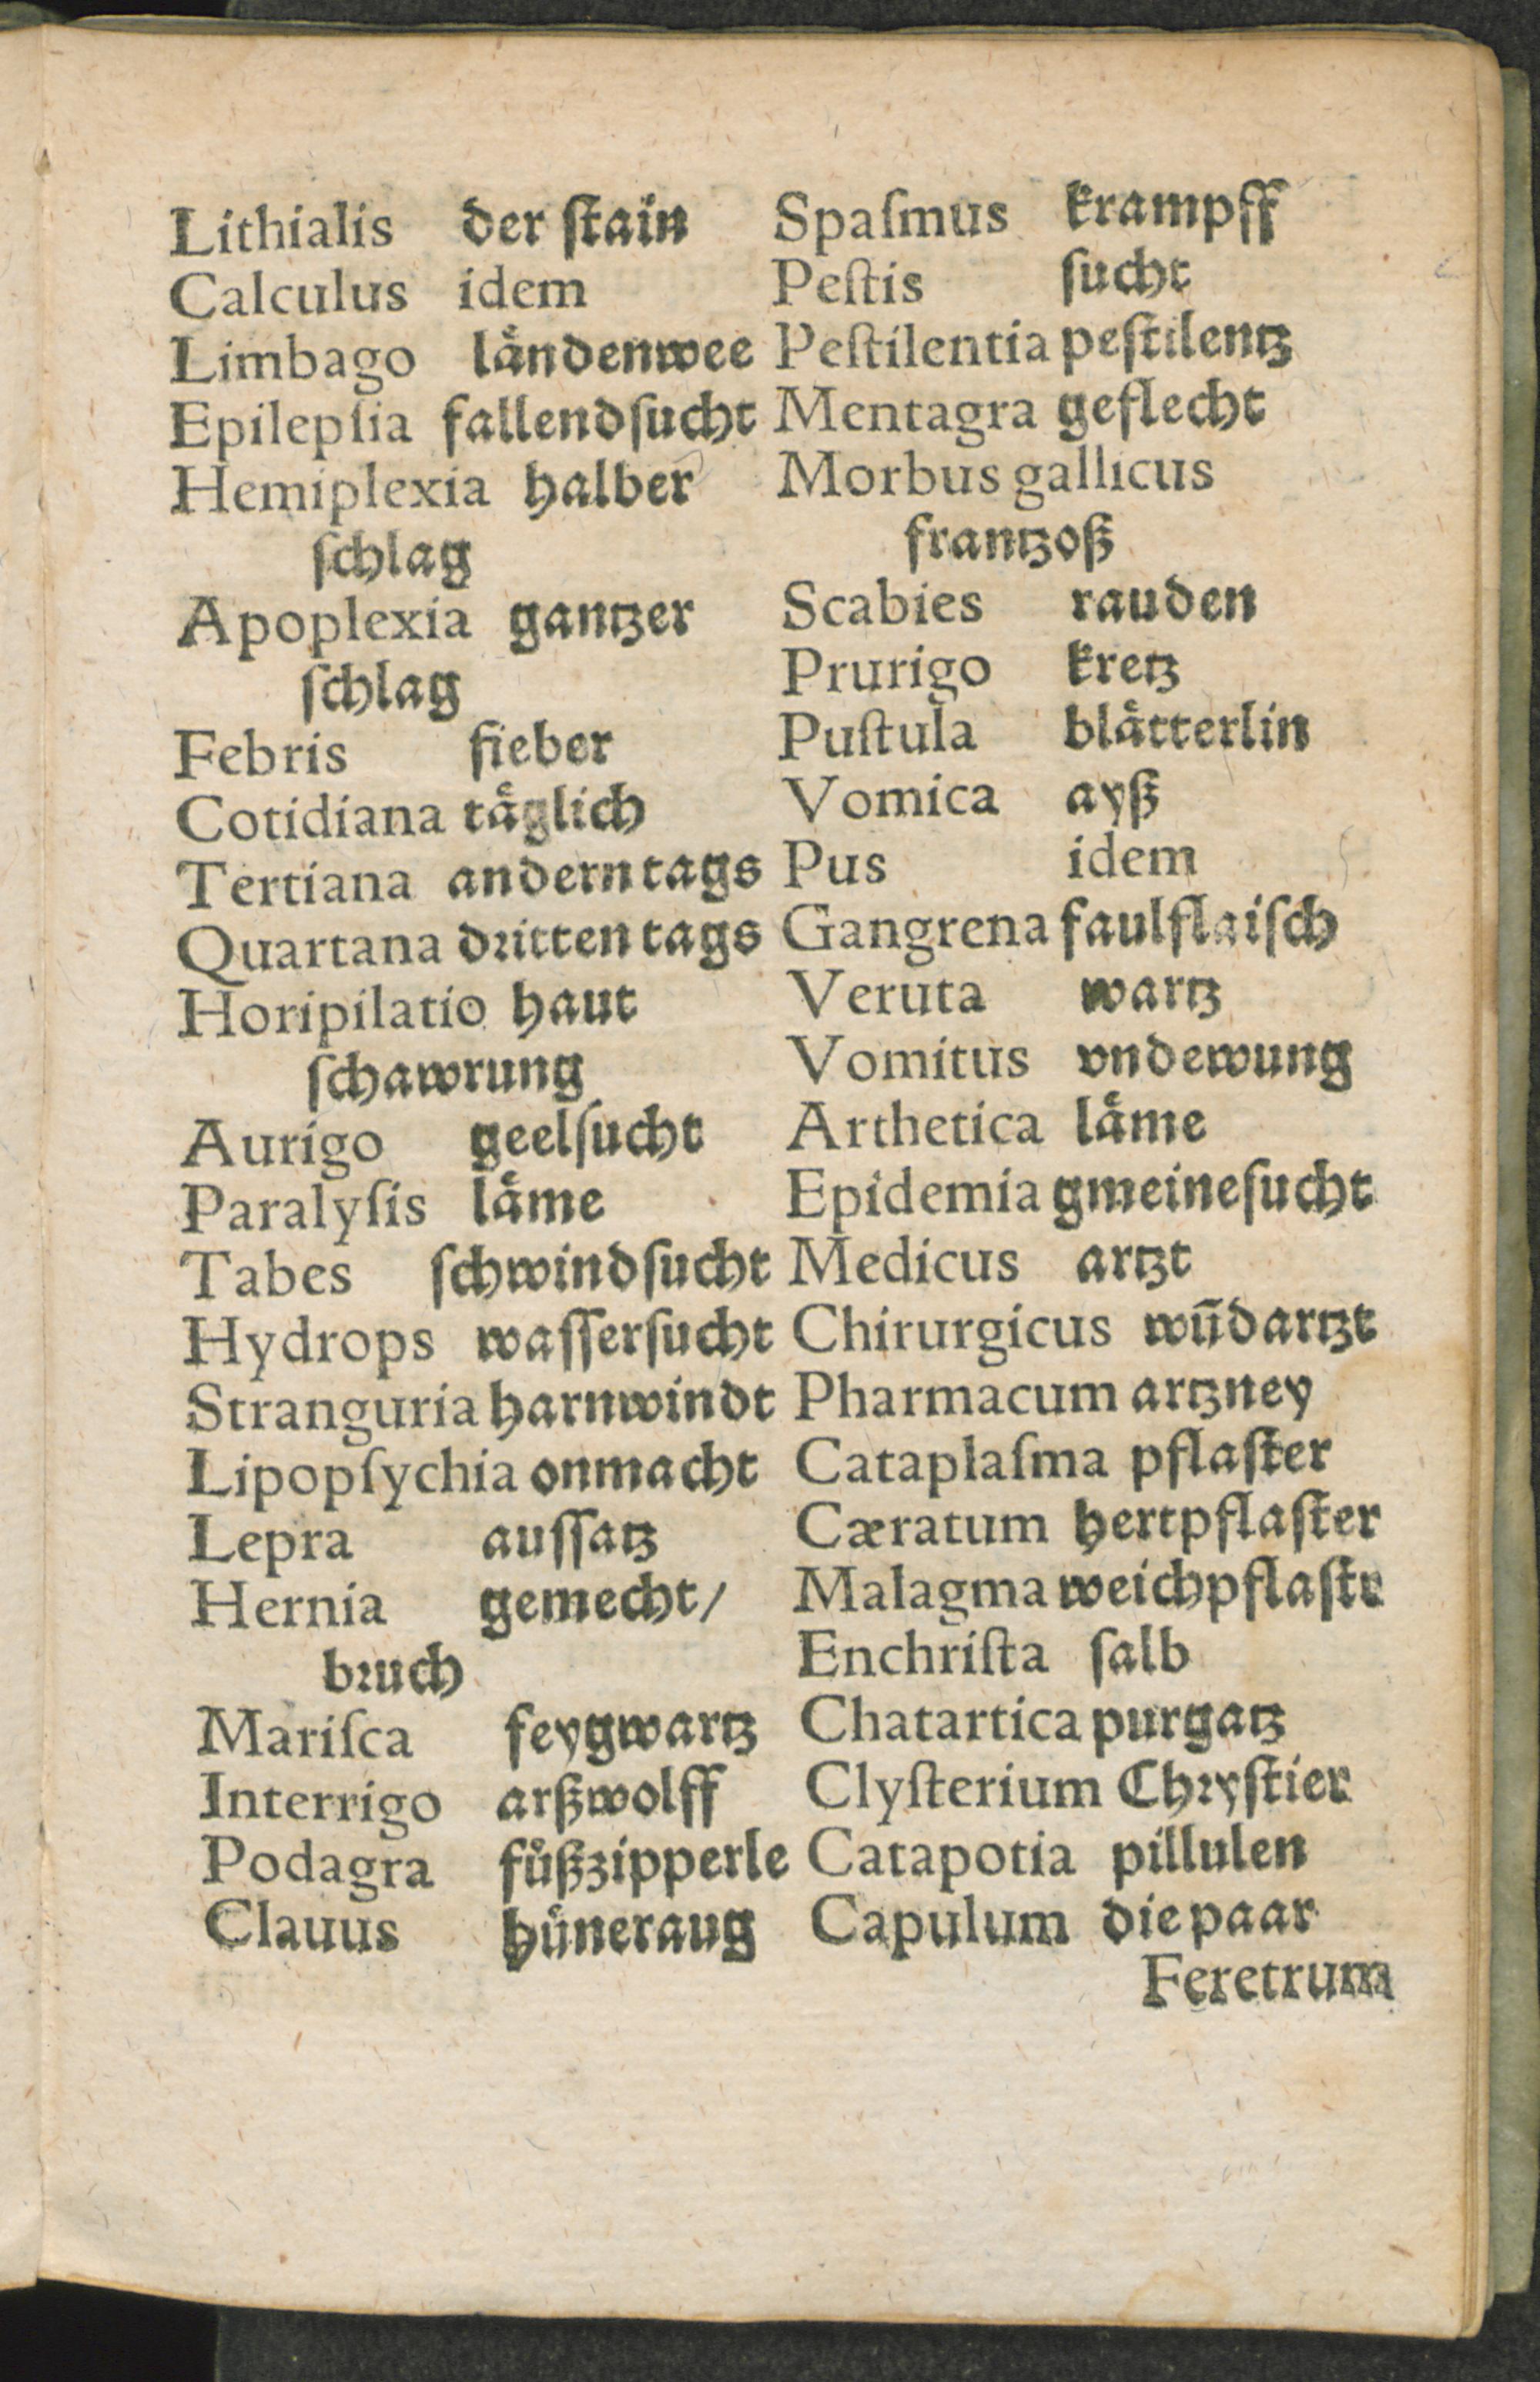 Lithiaſis der ſtain
Calculus idem
Limbago låndenwee
Epilepſia fallendſucht
Hemiplexia halber
ſchlag
Apoplexia gantzer
ſchlag
Febris fieber
Cotidiana tåglich
Tertiana anderntags
Quartana dꝛitten tags
Horipilatio haut
ſchawrung
Aurigo geelſucht
Paralyſis låme
Tabes ſchwindſucht
Hydrops waſſerſucht
Stranguria harnwindt
Lipopſychia onmacht
Lepra auſſatz
Hernia gemecht/
bꝛuch
Mariſca feygwartz
Interrigo arßwolff
Podagra fůßzipperle
Clauus hůneraug
Spaſmus krampff
Peſtis ſucht
Peſtilentia peſtilentz
Mentagra geflecht
Morbus gallicus
frantzoß
Scabies rauden
Prurigo kretz
Puſtula blåtterlin
Vomica ayß
Pus idem
Gangrena faulflaiſch
Veruta wartz
Vomitus vndewung
Arthetica låme
Epidemia gmeineſucht
Medicus artzt
Chirurgicus wūdartzt
Pharmacum artzney
Cataplaſma pflaſter
Cæratum hertpflaſter
Malagma weichpflaſtr
Enchriſta ſalb
Chatartica purgatz
Clyſterium Chꝛyſtier
Catapotia pillulen
Capulum die paar
Feretrum